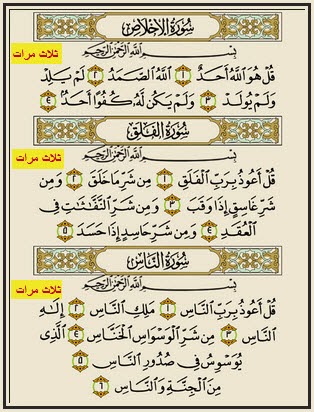 سُورَةُ الإِخْلَاصِ
ثلاث مرات
بِسْمِ اللَّهِ الرَّحْمَٰنِ الرَّحِيمِ
قُلْ هُوَ اللَّهُ أَحَدٌ ١ اللَّهُ الصَّمَدُ ٢ لَمْ يَلِدْ
وَلَمْ يُولَدْ ٣ وَلَمْ يَكُن لَّهُ كُفُوًا أَحَدٌ ٤
سُورَةُ الفَلَقِ
ثلاث مرات
بِسْمِ اللَّهِ الرَّحْمَٰنِ الرَّحِيمِ
قُلْ أَعُوذُ بِرَبِّ الْفَلَقِ ١ مِن شَرِّ مَا خَلَقَ ٢ وَمِن
شَرِّ غَاسِقٍ إِذَا وَقَبَ ٣ وَمِن شَرِّ النَّفَّاثَاتِ فِي
الْعُقَدِ ٤ وَمِن شَرِّ حَاسِدٍ إِذَا حَسَدَ ٥
سُورَةُ النَّاسِ
بِسْمِ اللَّهِ الرَّحْمَٰنِ الرَّحِيمِ
ثلاث مرات
قُلْ أَعُوذُ بِرَبِّ النَّاسِ ١ مَلِكِ النَّاسِ ٢ إِلَٰهِ
النَّاسِ ٣ مِن شَرِّ الْوَسْوَاسِ الْخَنَّاسِ ٤ الَّذِي
يُوَسْوِسُ فِي صُدُورِ النَّاسِ ٥
مِنَ الْجِنَّةِ وَالنَّاسِ ٦